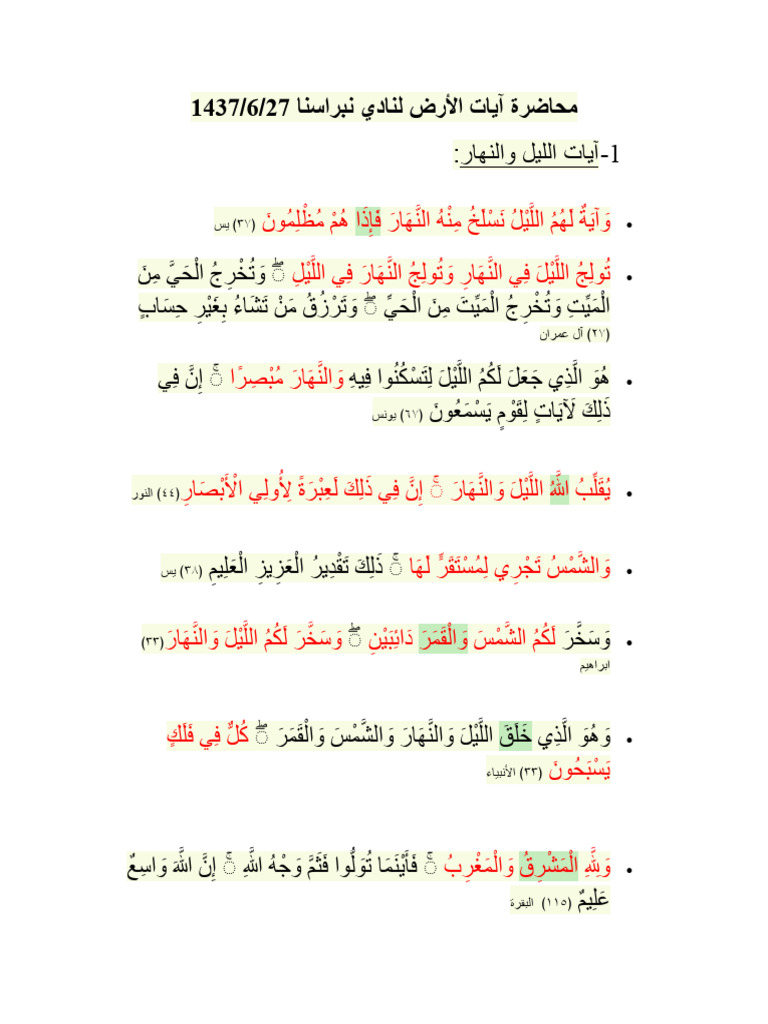 محاضرة آيات الأرض لنادي نبراسنا 1437/6/27
1-آيات الليل والنهار:
• وَآيَةٌ لَهُمُ اللَّيْلُ نَسْلَخُ مِنْهُ النَّهَارَ فَإِذَا هُمْ مُظْلِمُونَ (٣٧) يس
• تُولِجُ اللَّيْلَ فِي النَّهَارِ وَتُولِجُ النَّهَارَ فِي اللَّيْلِ ۖ وَتُخْرِجُ الْحَيَّ مِنَ
الْمَيِّتِ وَتُخْرِجُ الْمَيِّتَ مِنَ الْحَيِّ ۖ وَتَرْزُقُ مَنْ تَشَاءُ بِغَيْرِ حِسَابٍ
(٢٧) آل عمران
• هُوَ الَّذِي جَعَلَ لَكُمُ اللَّيْلَ لِتَسْكُنُوا فِيهِ وَالنَّهَارَ مُبْصِرًا ۚ إِنَّ فِي
ذَلِكَ لَآيَاتٍ لِقَوْمٍ يَسْمَعُونَ (٦٧) يونس
• يُقَلِّبُ اللَّهُ اللَّيْلَ وَالنَّهَارَ ۚ إِنَّ فِي ذَلِكَ لَعِبْرَةً لِأُولِي الْأَبْصَارِ(٤٤) النور
• وَالشَّمْسُ تَجْرِي لِمُسْتَقَرٍّ لَهَا ۚ ذَلِكَ تَقْدِيرُ الْعَزِيزِ الْعَلِيمِ (٣٨) يس
• وَسَخَّرَ لَكُمُ الشَّمْسَ وَالْقَمَرَ دَائِبَيْنِ ۖ وَسَخَّرَ لَكُمُ اللَّيْلَ وَالنَّهَارَ(٣٣)
ابراهيم
• وَهُوَ الَّذِي خَلَقَ اللَّيْلَ وَالنَّهَارَ وَالشَّمْسَ وَالْقَمَرَ ۖ كُلٌّ فِي فَلَكٍ
يَسْبَحُونَ (٣٣) الأنبياء
• وَلِلَّهِ الْمَشْرِقُ وَالْمَغْرِبُ ۚ فَأَيْنَمَا تُوَلُّوا فَثَمَّ وَجْهُ اللَّهِ ۚ إِنَّ اللَّهَ وَاسِعٌ
عَلِيمٌ (١١٥) البقرة